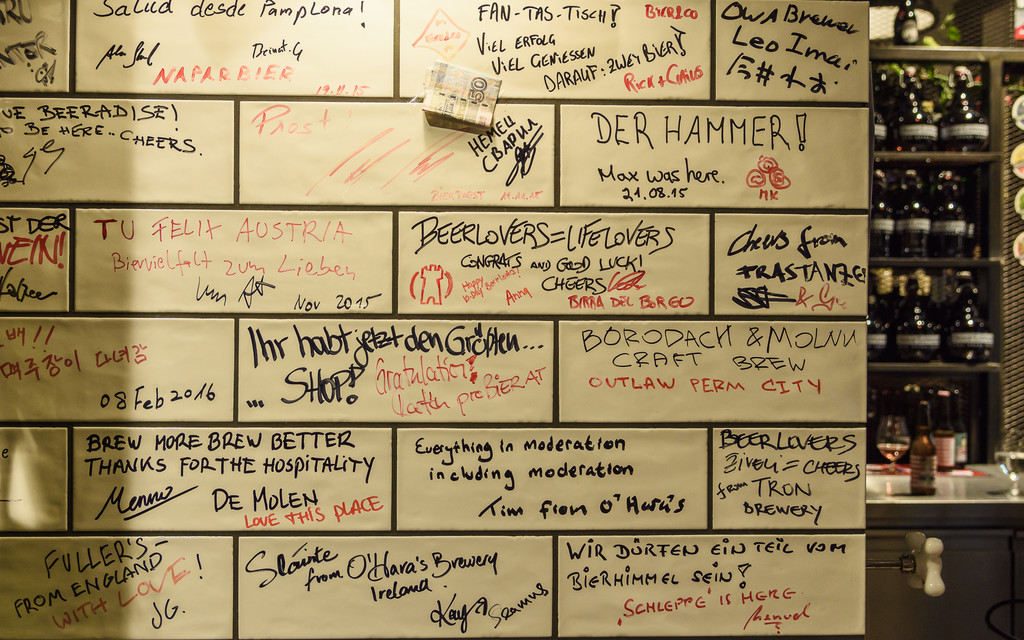 Salud desde Pamplona!
NAPARBIER
19.11.15
FAN-TAS-TISCH!
BIER&CO
VIEL ERFOLG
VIEL GENIESSEN
DARAUF: ZWEY BIER!
Leo Imai
BEERADISE!
TO BE HERE.. CHEERS.
Prost!
50
НЕМЕЦ
СВАРИЛ
DER HAMMER!
Max was here.
21.08.15
MK
ST DER
WEIN!
TU FELIX AUSTRIA
Biervielfalt zum Lieben
Nov 2015
BEERLOVERS=LIFELOVERS
CONGRATS AND GOOD LUCK!
CHEERS
Happy
Anna
BIRRA DEL BORGO
Cheers from
배!!
맥주장이 다녀감
08 Feb 2016
Ihr habt jetzt den Größten...
... SHOP!
Gratulation!
BIERAT
BORODACH & MOLNIJ
CRAFT BREW
OUTLAW PERM CITY
BREW MORE BREW BETTER
THANKS FOR THE HOSPITALITY
Menno
DE MOLEN
LOVE THIS PLACE
Everything in moderation
including moderation
Tim from O'Hara's
BEERLOVERS
ŽIVELI = CHEERS
from TRON
BREWERY
FULLER'S-
FROM ENGLAND
WITH LOVE!
JG.
Sláinte
from O'Hara's Brewery
Ireland.
Seamus
WIR DÜRFEN EIN TEIL VOM
BIERHIMMEL SEIN!
'SCHLEPPE' IS HERE
Manuel